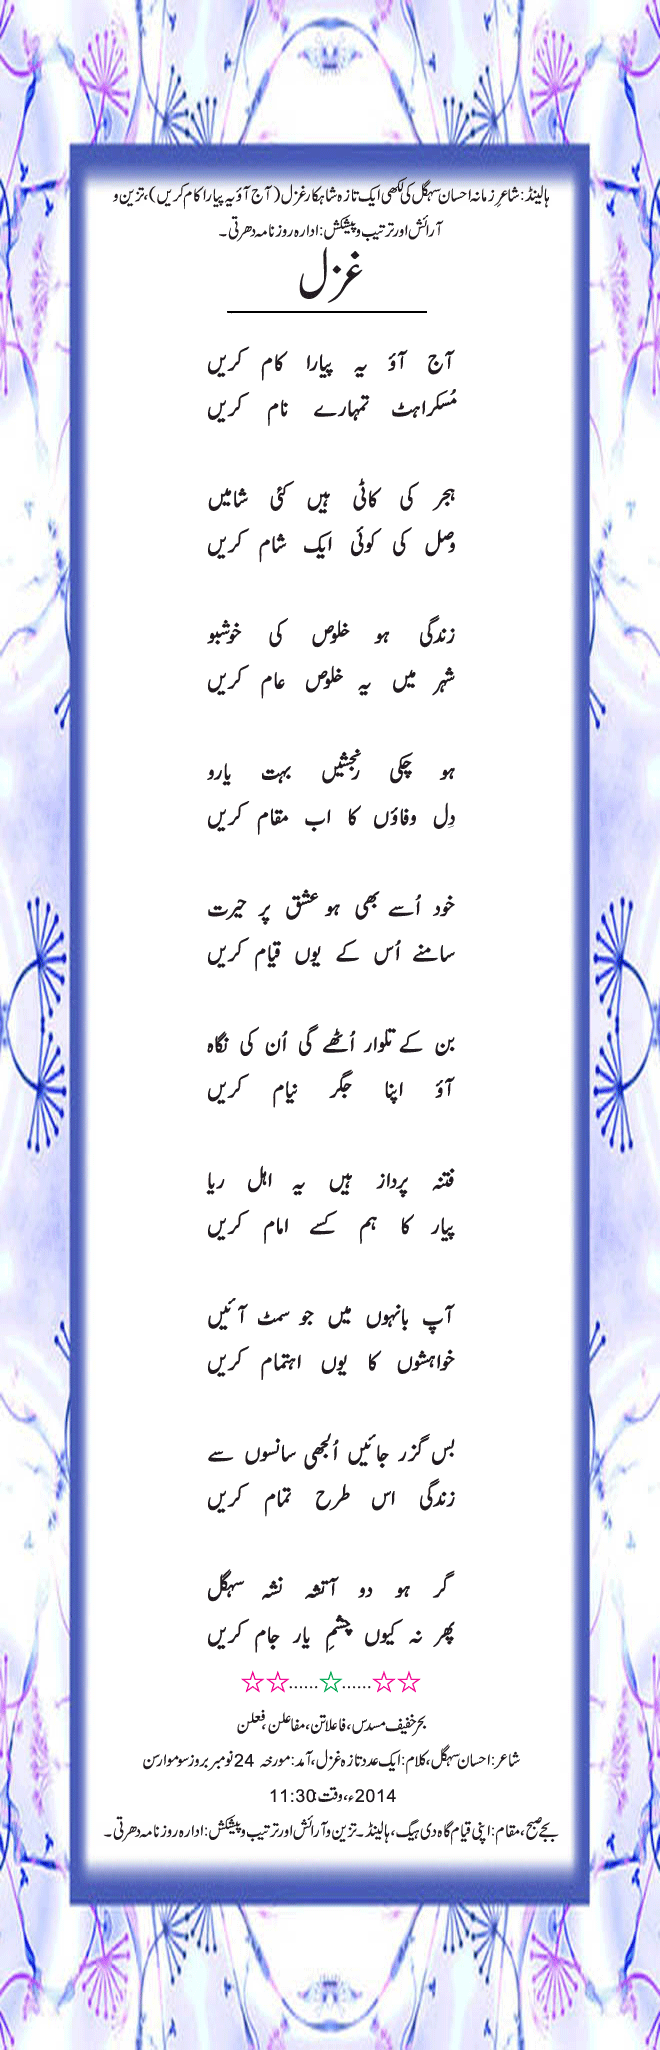 ہالینڈ: شاعرِ زمانہ احسان سہگل کی لکھی ایک تازہ شاہکار غزل (آج آؤ یہ پیارا کام کریں)، تزین و
آرائش اور ترتیب و پیشکش: ادارہ روزنامہ دھرتی۔
غزل
آج آؤ یہ پیارا کام کریں
مُسکراہٹ تمہارے نام کریں
ہجر کی کاٹی ہیں کئی شامیں
وصل کی کوئی ایک شام کریں
زندگی ہو خلوص کی خوشبو
شہر میں یہ خلوص عام کریں
ہو چکی رنجشیں بہت یارو
دِل وفاؤں کا اب مقام کریں
خود اُسے بھی ہو عشق پر حیرت
سامنے اُس کے یوں قیام کریں
بن کے تلوار اُٹھے گی اُن کی نگاہ
آؤ اپنا جگر نیام کریں
فتنہ پرداز ہیں یہ اہل ریا
پیار کا ہم کسے امام کریں
آپ بانہوں میں جو سمٹ آئیں
خواہشوں کا یوں اہتمام کریں
بس گزر جائیں اُلجھی سانسوں سے
زندگی اس طرح تمام کریں
گر ہو دو آتشہ نشہ سہگل
پھر نہ کیوں چشمِ یار جام کریں
بحر خفیف مسدس، فاعلاتن، مفاعلن، فعلن
شاعر: احسان سہگل، کلام: ایک عدد تازہ غزل، آمد: مورخہ 24 نومبر بروز سوموار سن
2014ء، وقت: 11:30
بجے صبح، مقام: اپنی قیام گاہ دی ہیگ، ہالینڈ۔ تزین و آرائش اور ترتیب و پیشکش: ادارہ روزنامہ دھرتی۔